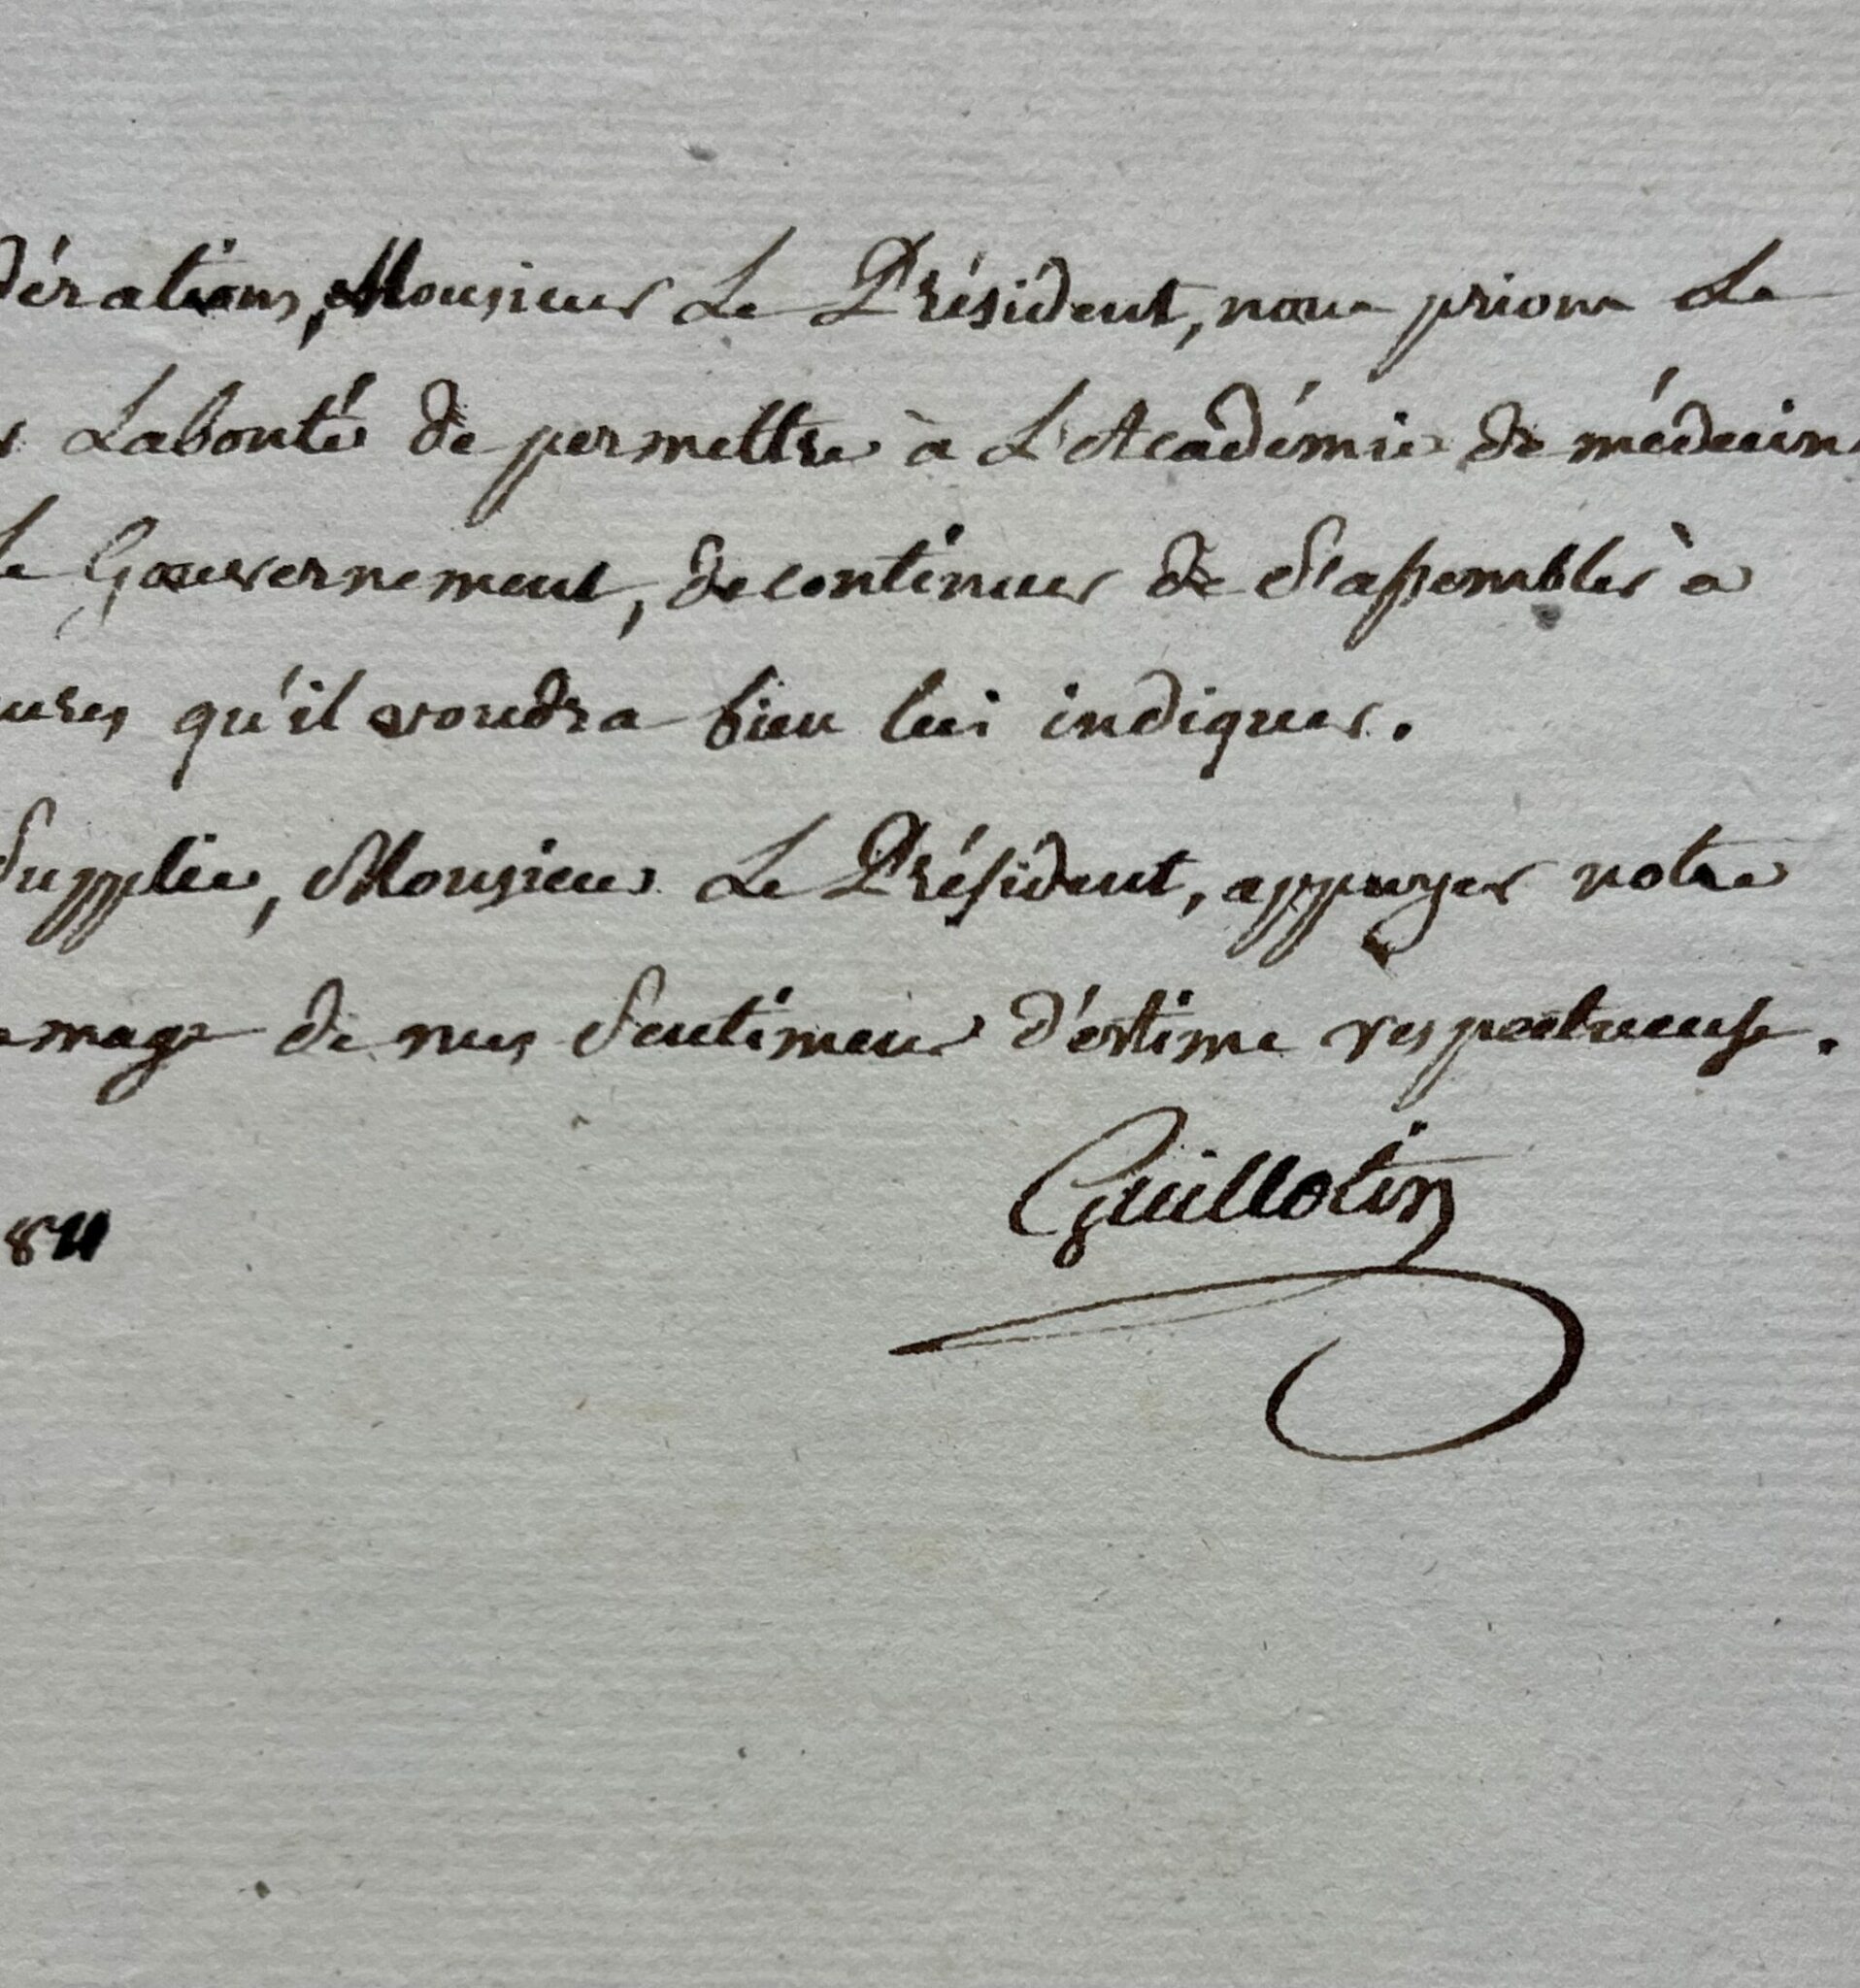 dérations, Monsieur Le Président, nous prions Le
Labonté de permettre à L'Académie de médecin
Le Gouvernement, de continuer de S'assembler à
ures qu'il voudra bien lui indiquer.
Supplie, Monsieur Le Président, appuyer notre
mage de nos Sentimens d'estime respectueuse.
Guillotin
811